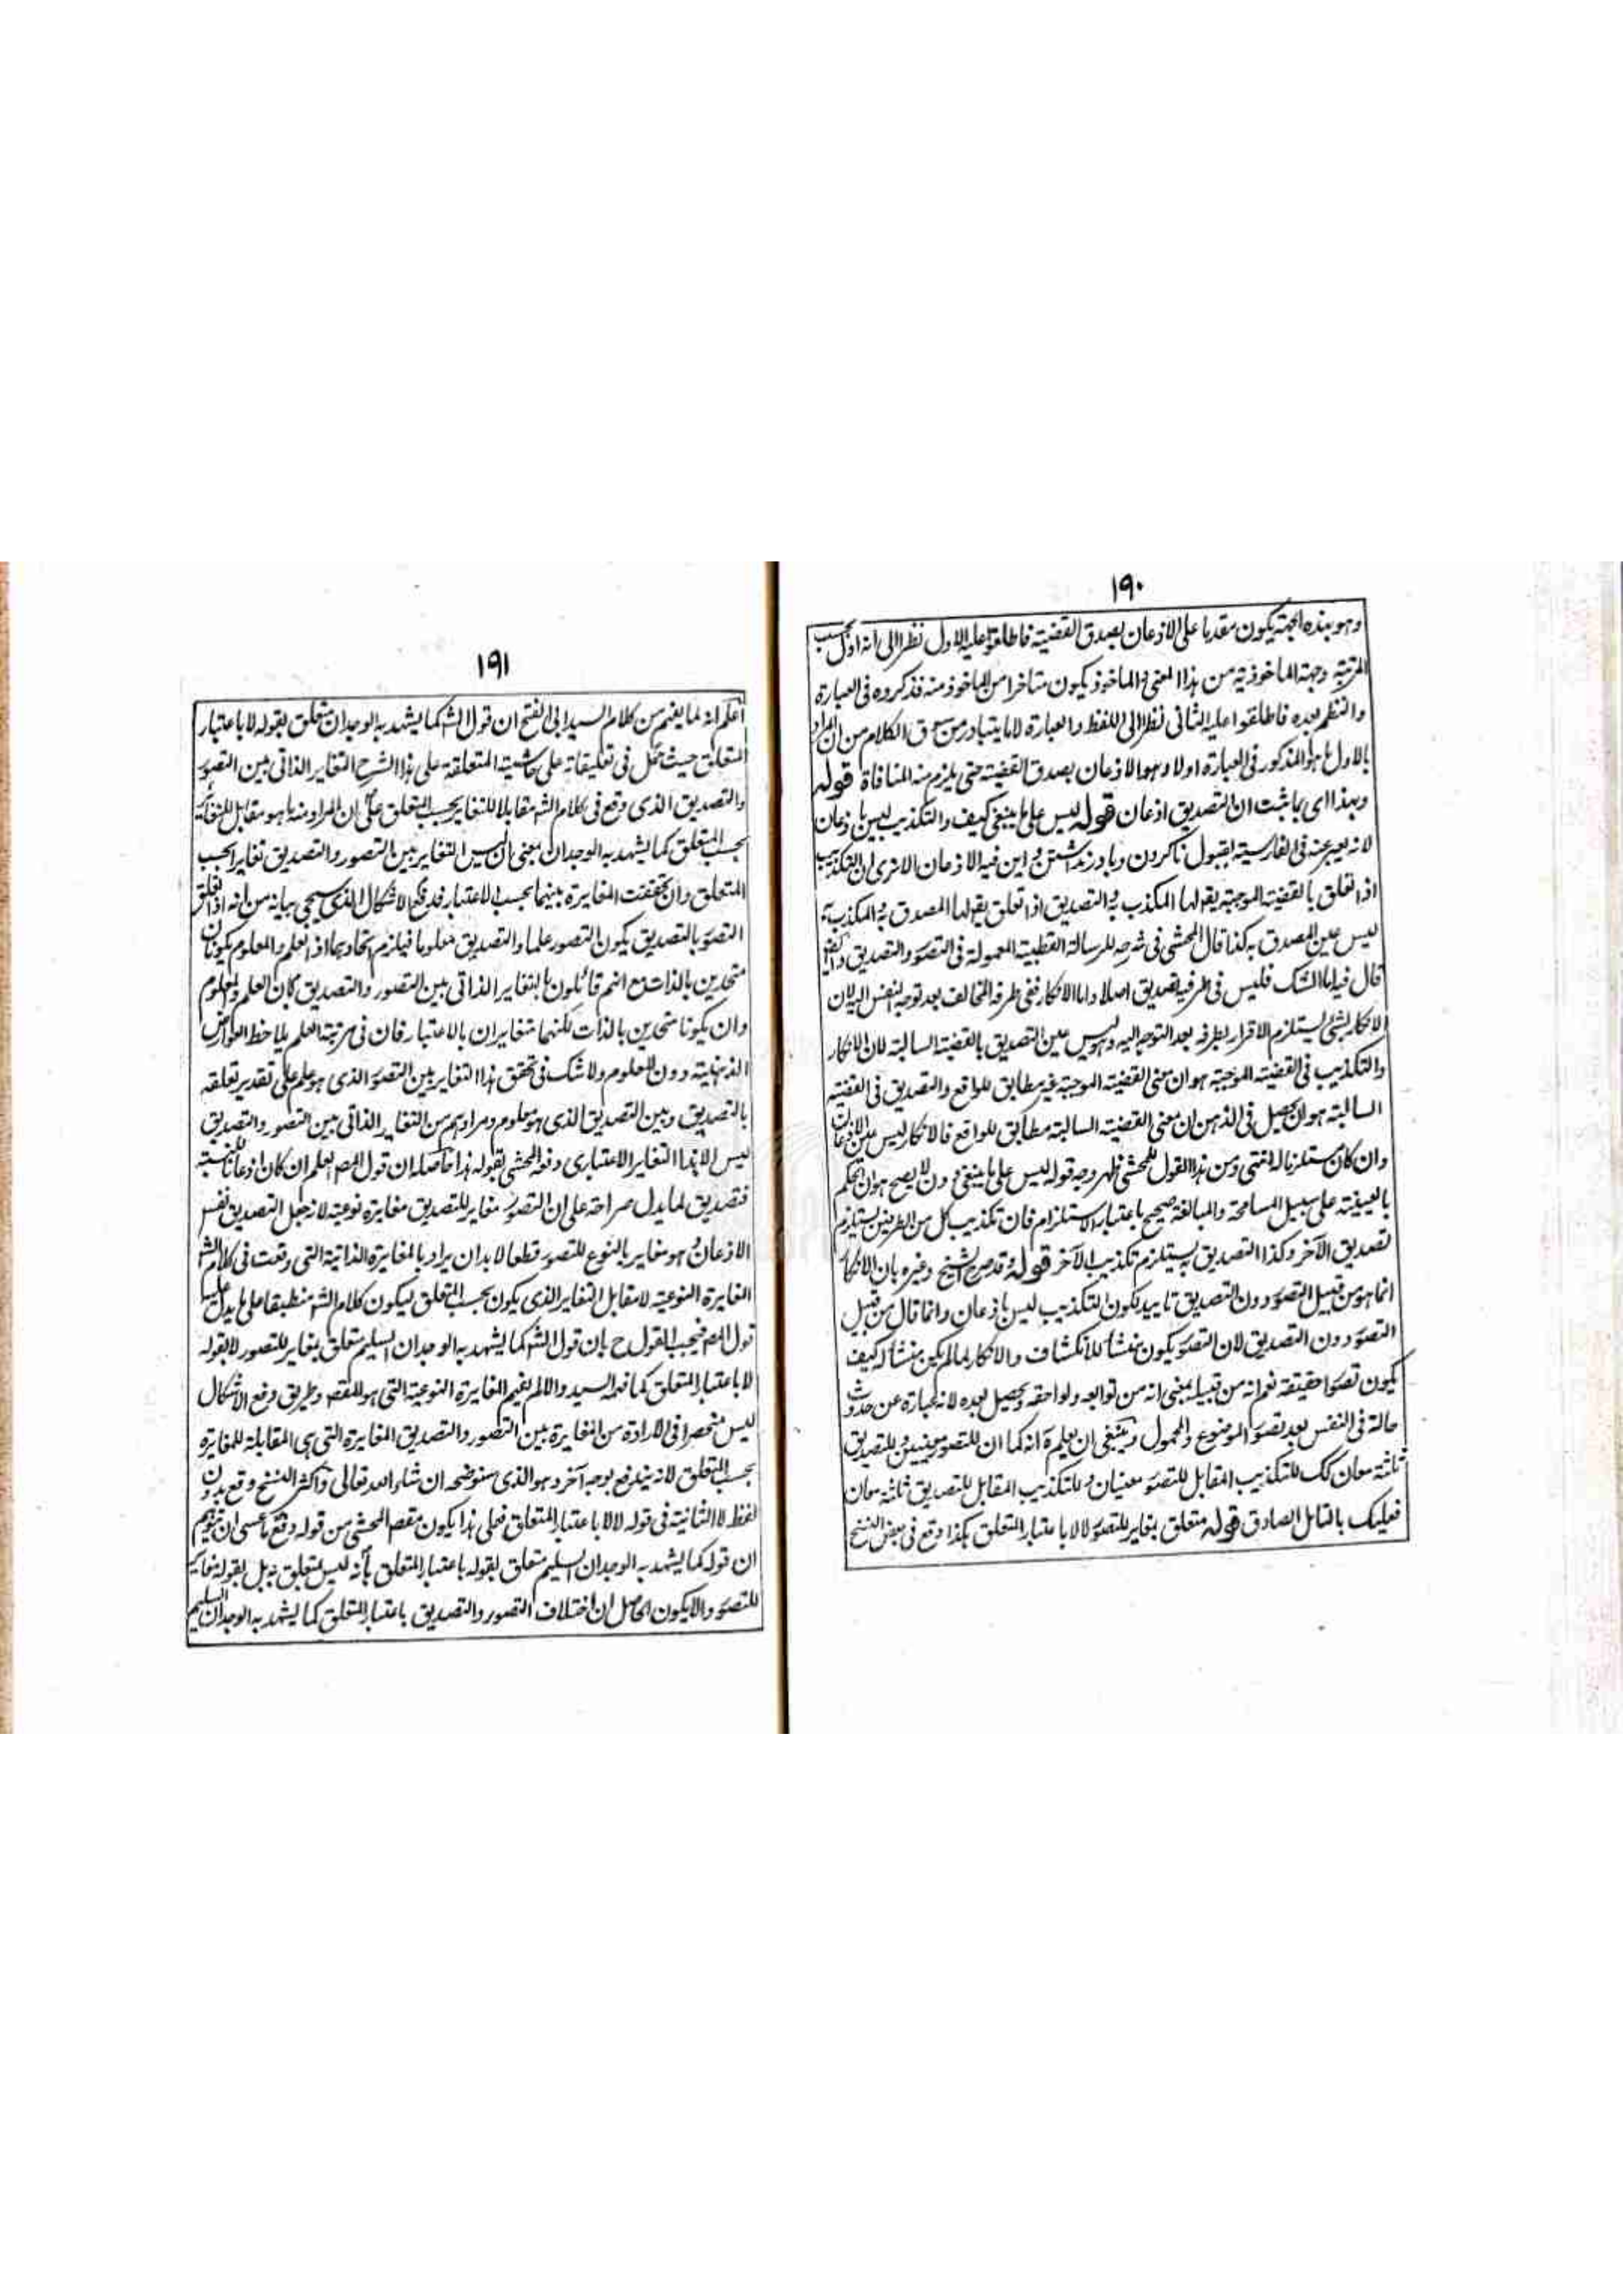 ١٩٠
وهو بهذه الجهة يكون مقدما على الاذعان بصدق القضية فاطلقوا عليه الاول نظرا الى انه اول بحسب
المرتبة وجهة الماخوذية من هذا المعنى والماخوذ يكون متاخرا من الماخوذ منه فذكروه فى العبارة
والنظم بعده فاطلقوا عليه الثانى نظرا الى اللفظ والعبارة لا ما يتبادر من سوق الكلام من ان المراد
بالاول ما هو المذكور فى العبارة اولا وهو الاذعان بصدق القضية حتى يلزم منه المنافاة قوله
وبهذا اى بما ثبت ان التصديق اذعان قوله ليس على ما ينبغى كيف والتكذيب ليس باذعان
لانه يعبر عنه فى الفارسية بقبول ناكردن وباور نداشتن واين فيه الاذعان الا ترى ان التكذيب
اذا تعلق بالقضية الموجبة يقع لها المكذب به والتصديق اذا تعلق يقع لها المصدق به والمكذب به
ليس عين المصدق به كذا قال المحشى فى شرحه للرسالة القطبية المعمولة فى التصور والتصديق وايضا
قال فيه اما الشك فليس فى طرفيه تصديق اصلا واما الانكار ففى طرفه المخالف بعد توجه النفس اليه لان
الانكار لشئ يستلزم الاقرار بطرفه بعد التوجه اليه وليس عين التصديق بالقضية السالبة لان الانكار
والتكذيب فى القضية الموجبة هو ان معنى القضية الموجبة غير مطابق للواقع والتصديق فى القضية
السالبة هو ان يحصل فى الذهن ان معنى القضية السالبة مطابق للواقع فالانكار ليس عين الاذعان
وان كان مستلزما له انتهى ومن هذا القول للمحشى ظهر وجه قوله ليس على ما ينبغى دون لا يصح هو ان الحكم
بالعينية على سبيل المسامحة والمبالغة صحيح باعتبار الاستلزام فان تكذيب كل من الطرفين يستلزم
تصديق الآخر وكذا التصديق به يستلزم تكذيب الآخر قوله وقد صرح الشيخ وغيره بان الانكار
انما هو من قبيل التصور دون التصديق تاييد لكون التكذيب ليس باذعان وانما قال من قبيل
التصور دون التصديق لان التصور يكون منشأ للانكشاف والانكار لما لم يكن منشأ له كيف
يكون تصورا حقيقة نعم انه من قبيله بمعنى انه من توابعه ولواحقه ويحصل بعده لانه عبارة عن حدوث
حالة فى النفس بعد تصور الموضوع والمحمول وينبغى ان يعلم انه كما ان للتصور معنيين وللتصديق
ثلثة معان كك للتكذيب المقابل للتصور معنيان وللتكذيب المقابل للتصديق ثلثة معان
فعليك بالتامل الصادق قوله متعلق بتغاير للتصور لا لا باعتبار المتعلق هكذا وقع فى بعض النسخ
١٩١
اعلم انه لما يفهم من كلام السيد ابى الفتح ان قول الشـ كما يشهد به الوجدان متعلق بقوله لا باعتبار
المتعلق حيث حمل فى تعليقاته على حاشيته المتعلقة على هذا الشرح التغاير الذاتى بين التصور
والتصديق الذى وقع فى كلام الشـ مقابلا للتغاير بحسب المتعلق على ان المراد منه ما هو مقابل للتغاير
بحسب المتعلق كما يشهد به الوجدان بمعنى ان ليس التغاير بين التصور والتصديق تغايرا بحسب
المتعلق وان تحققت المغايرة بينهما بحسب الاعتبار فدفع الاشكال الذى سيجى بيانه من انه اذا تعلق
التصور بالتصديق يكون التصور علما والتصديق معلوما فيلزم اتحادهما اذ العلم والمعلوم يكونان
متحدين بالذات مع انهم قائلون بالتغاير الذاتى بين التصور والتصديق بان العلم والمعلوم
وان يكونا متحدين بالذات لكنهما متغايران بالاعتبار فان فى مرتبة العلم يلاحظ العوارض
الذهنية دون المعلوم ولا شك فى تحقق هذا التغاير بين التصور الذى هو علم على تقدير تعلقه
بالتصديق وبين التصديق الذى هو معلوم ومرادهم من التغاير الذاتى بين التصور والتصديق
ليس الا هذا التغاير الاعتبارى دفعه المحشى بقوله هذا حاصله ان قول المصـ العلم ان كان اذعانا للنسبة
فتصديق لما يدل صراحة على ان التصور مغاير للتصديق مغايرة نوعية لانه جعل التصديق نفس
الاذعان وهو مغاير بالنوع للتصور قطعا لا بد ان يراد بالمغايرة الذاتية التى وقعت فى كلام الشـ
المغايرة النوعية لا مقابل التغاير الذى يكون بحسب المتعلق ليكون كلام الشـ منطبقا على ما يدل عليه
قول المصـ فيجب القول ح بان قول الشـ كما يشهد به الوجدان السليم متعلق بتغاير للتصور لا بقوله
لا باعتبار المتعلق كما فهمه السيد والا لم يفهم المغايرة النوعية التى هو المقصـ وطريق دفع الاشكال
ليس منحصرا فى الارادة من المغايرة بين التصور والتصديق المغايرة التى هى المقابلة للمغايرة
بحسب المتعلق لانه يندفع بوجه آخر وهو الذى سنوضحه ان شاء الله تعالى واكثر النسخ وقع بدون
لفظ لا الثانية فى قوله لا لا باعتبار المتعلق فعلى هذا يكون مقصـ المحشى من قوله دفع ما عسى ان يتوهم
ان قوله كما يشهد به الوجدان السليم متعلق بقوله باعتبار المتعلق بأنه ليس متعلق به بل بقوله مغاير
للتصور والا يكون الحاصل ان اختلاف التصور والتصديق باعتبار المتعلق كما يشهد به الوجدان السليم